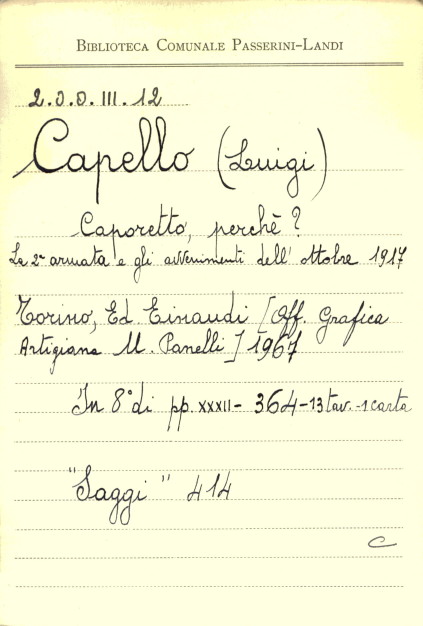 BIBLIOTECA COMUNALE PASSERINI-LANDI
2.O.O.III.12
Capello (Luigi)
Caporetto, perchè?
La 2ª armata e gli avvenimenti dell' ottobre 1917
Torino, Ed Einaudi [Off. Grafica
Artigiana U. Panelli] 1967
In 8° di pp. XXXII- 364-13 tav.-1 carta
"Saggi" 414
C